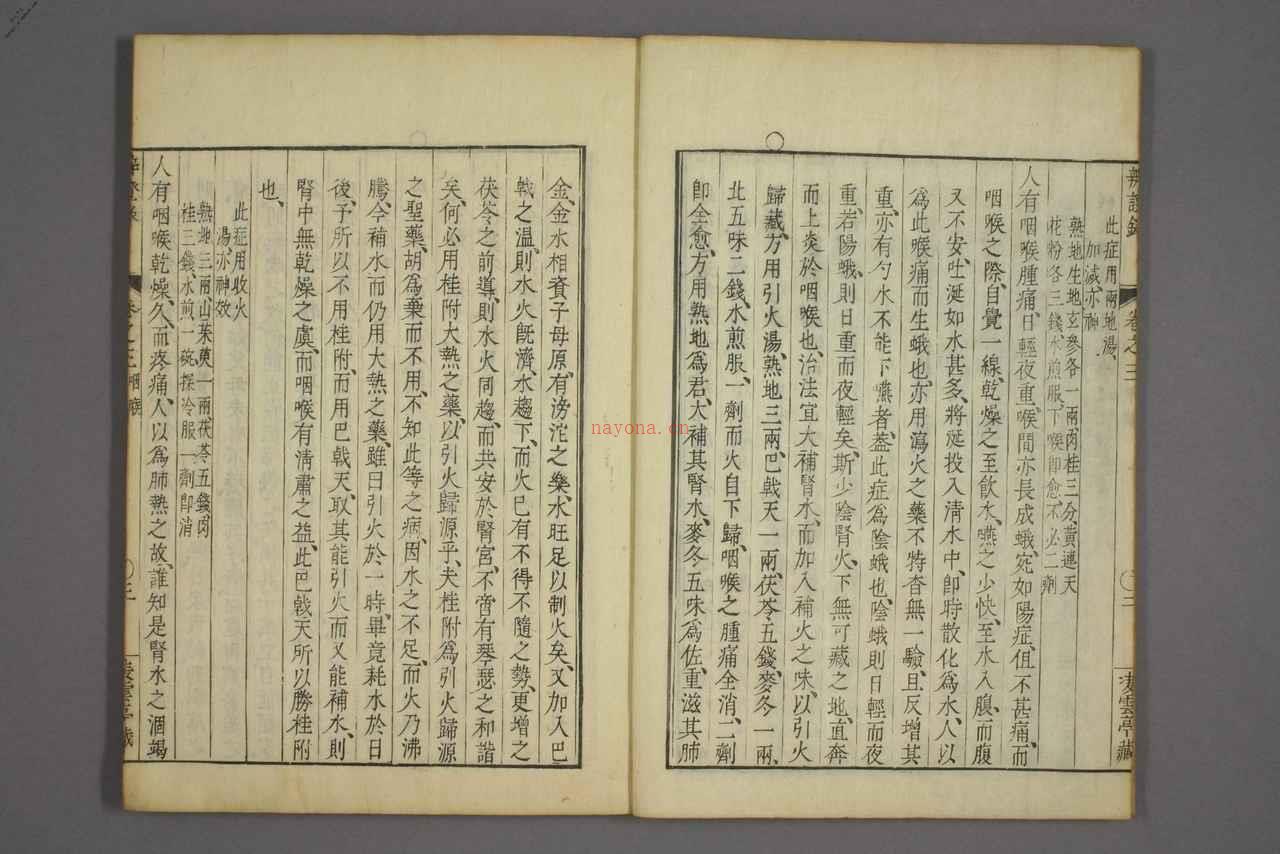 辨證錄 卷之三 〇二 凌雲亭藏
此症用兩地湯、
加減亦神、
熟地生地玄參各一兩肉桂三分黃連天
花粉各三錢水煎服、下喉即愈、不必二劑
人有咽喉腫痛、日輕夜重、喉間亦長成蛾、宛如陽症、但不甚痛、而
咽喉之際、自覺一線乾燥之至、飲水嚥之少快、至水入腹、而腹
又不安、吐涎如水甚多、將涎投入清水中、即時散化為水、人以
為此喉痛而生蛾也、亦用瀉火之藥、不特杳無一驗、且反增其
重、亦有勺水不能下嚥者、蓋此症為陰蛾也、陰蛾則日輕而夜
重、若陽蛾、則日重而夜輕矣、斯少陰腎火、下無可藏之地、直奔
而上炎於咽喉也、治法宜大補腎水、而加入補火之味、以引火
歸藏、方用引火湯、熟地三兩、巴戟天一兩、茯苓五錢、麥冬一兩、
北五味二錢、水煎服、一劑而火自下歸、咽喉之腫痛全消、二劑
即全愈、方用熟地為君、大補其腎水、麥冬五味為佐、重滋其肺
金、金水相資子母原有滂沱之樂、水旺足以制火矣、又加入巴
戟之溫、則水火既濟、水趨下、而火已有不得不隨之勢、更增之
茯苓之前導、則水火同趨、而共安於腎宮、不啻有琴瑟之和諧
矣、何必用桂附大熱之藥、以引火歸源乎、夫桂附為引火歸源
之聖藥、胡為棄而不用、不知此等之病、因水之不足、而火乃沸
騰、今補水而仍用大熱之藥、雖曰引火於一時、畢竟耗水於日
後、予所以不用桂附、而用巴戟天、取其能引火、而又能補水、則
腎中無乾燥之虞、而咽喉有清肅之益、此巴戟天所以勝桂附
也、
此症用收火
湯、亦神效
熟地三兩山茱萸一兩茯苓五錢肉
桂三錢、水煎一碗、探冷服、一劑即消
人有咽喉乾燥、久而疼痛、人以為肺熱之故、誰知是腎水之涸竭
卷之三 咽喉 〇三
nayona.cn